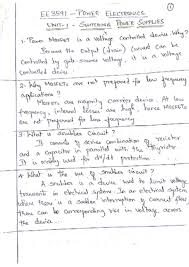 EE3591 - POWER ELECTRONICS
UNIT-1 - SWITCHING POWER SUPPLIES
1. Power MOSFET is a voltage controlled device. Why?
Because the Output (drain) current can be
controlled by gate source voltage, it is a voltage
controlled device.
2. Why MOSFETs are not prepared for low frequency
applications?
MOSFETs are majority carrier device. At low
frequency, losses are hence MOSFETs
are not prepared for low frequency
3. What is snubber circuit?
It consists of series combination of resistor
and a capacitor in parallel with the thyristor
It is mainly used for dv/dt protection.
4. What is the use of snubber circuit?
A snubber is a device used to limit voltage
transients in electrical system. In an electrical system
when there is a sudden interruption of current flow
there can be corresponding rise in voltage across
the device.